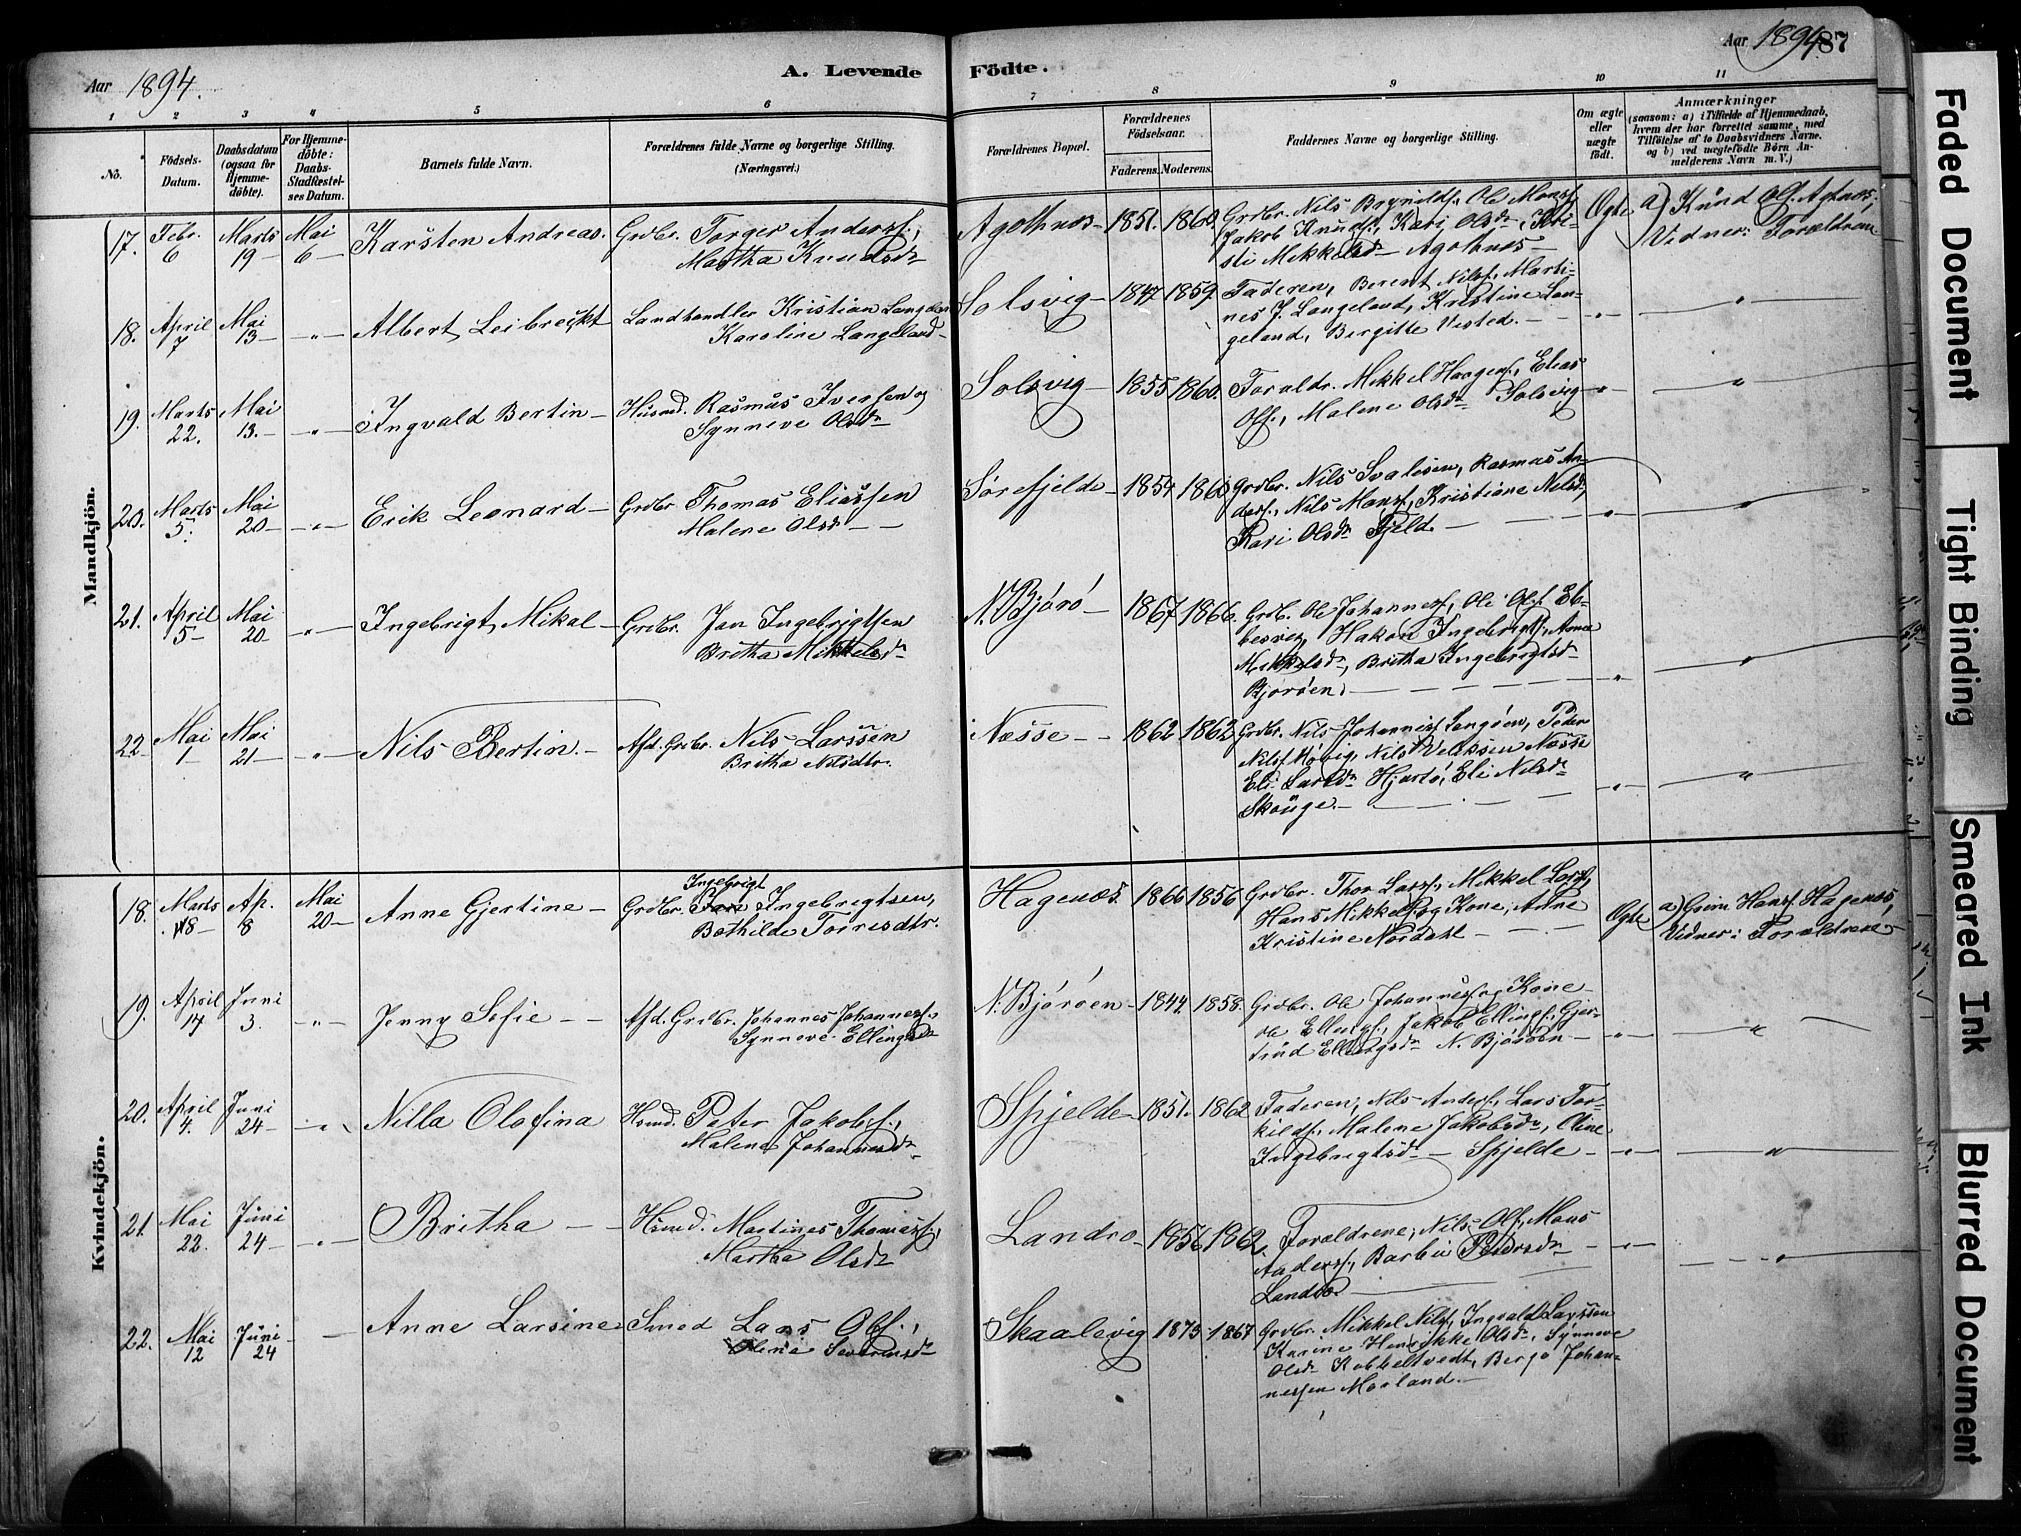 Aar 1894.
A. Levende Födte.
Aar 1894. 87
1 2 3 4 5 6 7 8 9 10 11
No.
Födsels-Datum.
Daabsdatum (ogsaa for Hjemme-döbte).
For Hjemme-döbte: Daabs-Stadfæstel-ses Datum.
Barnets fulde Navn.
Forældrenes fulde Navne og borgerlige Stilling. (Næringsvei.)
Forældrenes Bopæl.
Forældrenes Födselsaar.
Faderens. Moderens.
Faddernes Navne og borgerlige Stilling.
Om ægte eller uægte födt.
Anmærkninger
(saasom: a) i Tilfælde af Hjemmedaab, hvem der har forrettet samme, med Tilföielse af to Daabsvidners Navne. og b) ved uægtefödte Börn Anmelderens Navn m. V.)
Mandkjön.
17. Febr. 6 Marts 19 Mai 6 Karsten Andreas. Grdbr. Torger Andersf., Martha Knudsdr Agothnes 1851. 1860. Grdbr. Nils Brynildsf., Ole Monsf.
Jakob Knudsf., Kari Olsdr, Kri-
sti Mikkelsdr Agothnes Ægte a) Knud Olf. Agtnes.
Vidner: Forældrene
18. April 7 Mai 13 " Albert Leibreckt Landhandler Kristian Langeland
Karoline Langeland Solsvig 1847 1859. Faderen, Berent Nilsf., Marti-
nes J. Langeland, Kristine Lan-
geland, Birgitte Vested. " "
19. Marts 22. Mai 13. " Ingvald Bertin Husmd. Rasmus Iversen og
Synneve Olsdr Solsvig 1855 1860. Foraldr. Mikkel Haagensf., Elias
Olf., Malene Olsdr Solsvig " "
20. Marts 5. Mai 20 " Erik Leonard Grdbr Thomas Eliassen
Malene Olsdr Sørefjelde 1859 1860 Grdbr. Nils Svalesen, Rasmus An-
dersf., Nils Monsf., Kristiane Nilsd.,
Kari Olsdr Fjeld. " "
21. April 5 Mai 20 " Ingebrigt Mikal Grdbr. Jan Ingebrigtsen
Britha Mikkelsdr N. Bjørø 1867 1866. Grdb. Ole Johannesf., Ole Olsf. Eb-
besvig, Hakon Ingebrigtsf., Anna
Mikkelsdr, Britha Ingebrigtsdr
Bjorøen. " "
22 Mai 1 Mai 21 " Nils Bertin. Afd. Grdbr. Nils Larssen
Britha Nilsdtr. Nesse 1862 1862 Grdbr. Nils Johannesf. Langøen, Peder
Nilsf. Møvig, Nils Velksen Nesse
Eli Larsdr Hjartø, Eli Nilsdr
Skouge. " "
Kvindekjön.
18. Marts 18 Ap. 8 Mai 20 Anne Gjertine Grdbr. Ingebrigt Ingebregtsen,
Bothilde Torresdtr. Hagenæs. 1866 1856 Grdbr. Thor Larsf., Mikkel Larsf.,
Hans Mikkelsf. og Kone, Anne
Kristine Nordahl Ægte a) Grim Hansf. Hagenæs,
Vidner: Forældrene
19. April 17 Juni 3. " Jenny Sofie Afd. Grdbr. Johannes Johannesf.,
Synneve Ellingsdr N. Bjørøen 1844. 1858. Grdbr. Ole Johannesf. og Kone
Ole Ellingsf., Jakob Ellingsf., Gjer-
trud Ellingsdr N. Bjørøen " "
20. April 4. Juni 24 " Nilla Olofina Husmd. Peter Jakobsf.,
Malene Johannesdr Spjelde 1851. 1862 Faderen, Nils Andersf., Lars Tor-
kildsf., Malene Jakobsdr, Oline
Ingebrigtsdr Spjelde " "
21. Mai 22. Juni 24 " Britha Husmd. Martines Thomasf.,
Martha Olsdr Landro 1856 1862. Foraldrene, Nils Olf., Mons
Andersf., Barbu Pedersdr
Landro " "
22. Mai 12 Juni 24 Anne Larsine Smed Lars Olf.,
Oline Severinsdr Skaalevig 1875 1867 Grdbr. Mikkel Nilsf., Ingvald Larssen
Karine Henrikke Olsdr, Synneve
Olsdr Kobbeltvedt, Berge Johan-
nessen Morland.
Faded Document
Tight Binding
Smeared Ink
Blurred Document